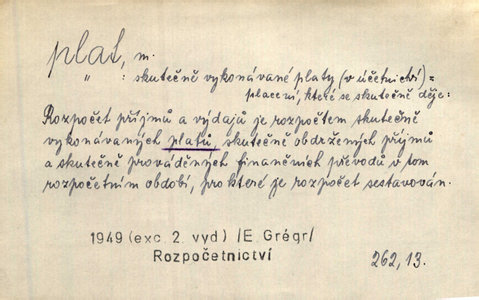 plat, m.
" : skutečně vykonávané platy (v účetnictví) =
placení, které se skutečně děje:
Rozpočet příjmů a výdajů je rozpočtem skutečně
vykonávaných platů, skutečně obdržených příjmů
a skutečně prováděných finančních převodů v tom
rozpočetním období, pro které je rozpočet sestavován.
1949 (exc. 2. vyd) /E. Grégr/
Rozpočetnictví
262,13.